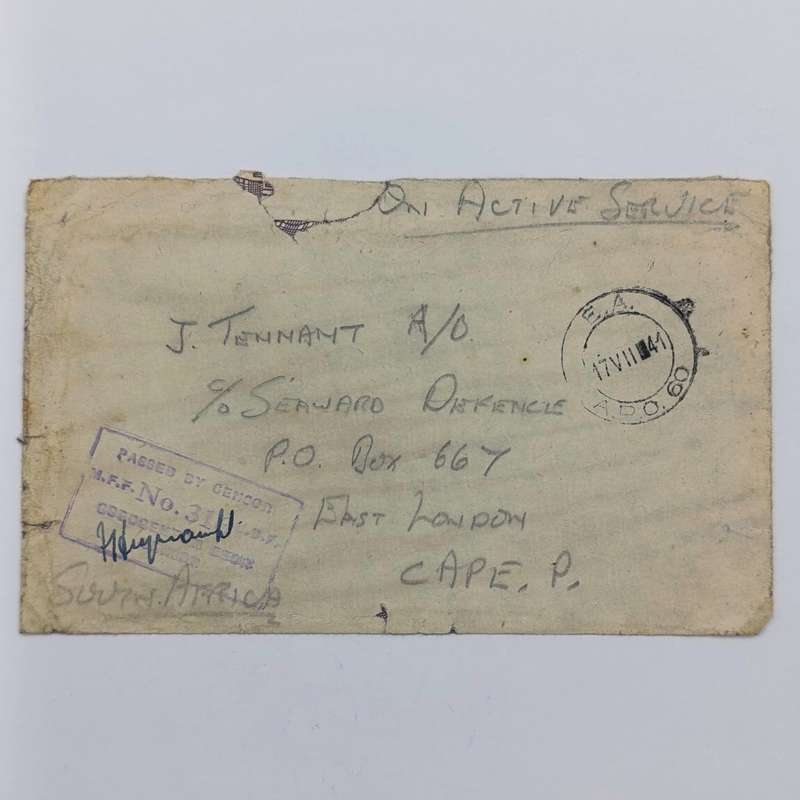 On Active Service
J. Tennant A/B
c/o Seaward Defence
P.O. Box 667
East London
Cape. P.
South Africa
E.A.
17 VII 41
A.P.O. 60
PASSED BY CENSOR
No. 31